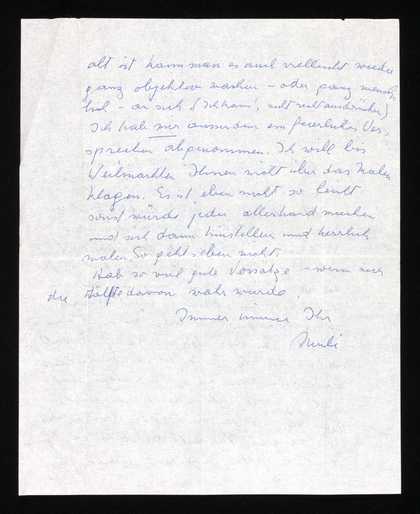 alt ist kann man es auch vielleicht wieder
ganz objektiv machen - oder ganz
- an sich
Ich hab mir ausserdem ein feierliches Ver-
sprechen abgenommen. Ich will bis
Weihnachten Ihnen nicht über das Malen
klagen. Es ist eben nicht so leicht
sonst würde jeder allerhand merken
und sich dann hinstellen und herrlich
malen. So geht's eben nicht.
Hab so viel gute Vorsätze - wenn nur
die Hälfte davon wahr wurde.
Immer Ihr